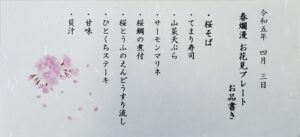 令和五年　四月　三日
春爛漫　お花見プレート
お品書き
・桜そば
・てまり寿司
・山菜天ぷら
・サーモンマリネ
・桜鯛の煮付
・桜とうふのえんどうすり流し
・ひとくちステーキ
・甘味
・貝汁